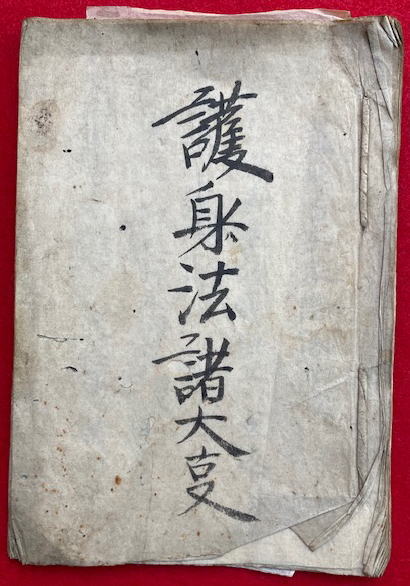 護身法諸大叓